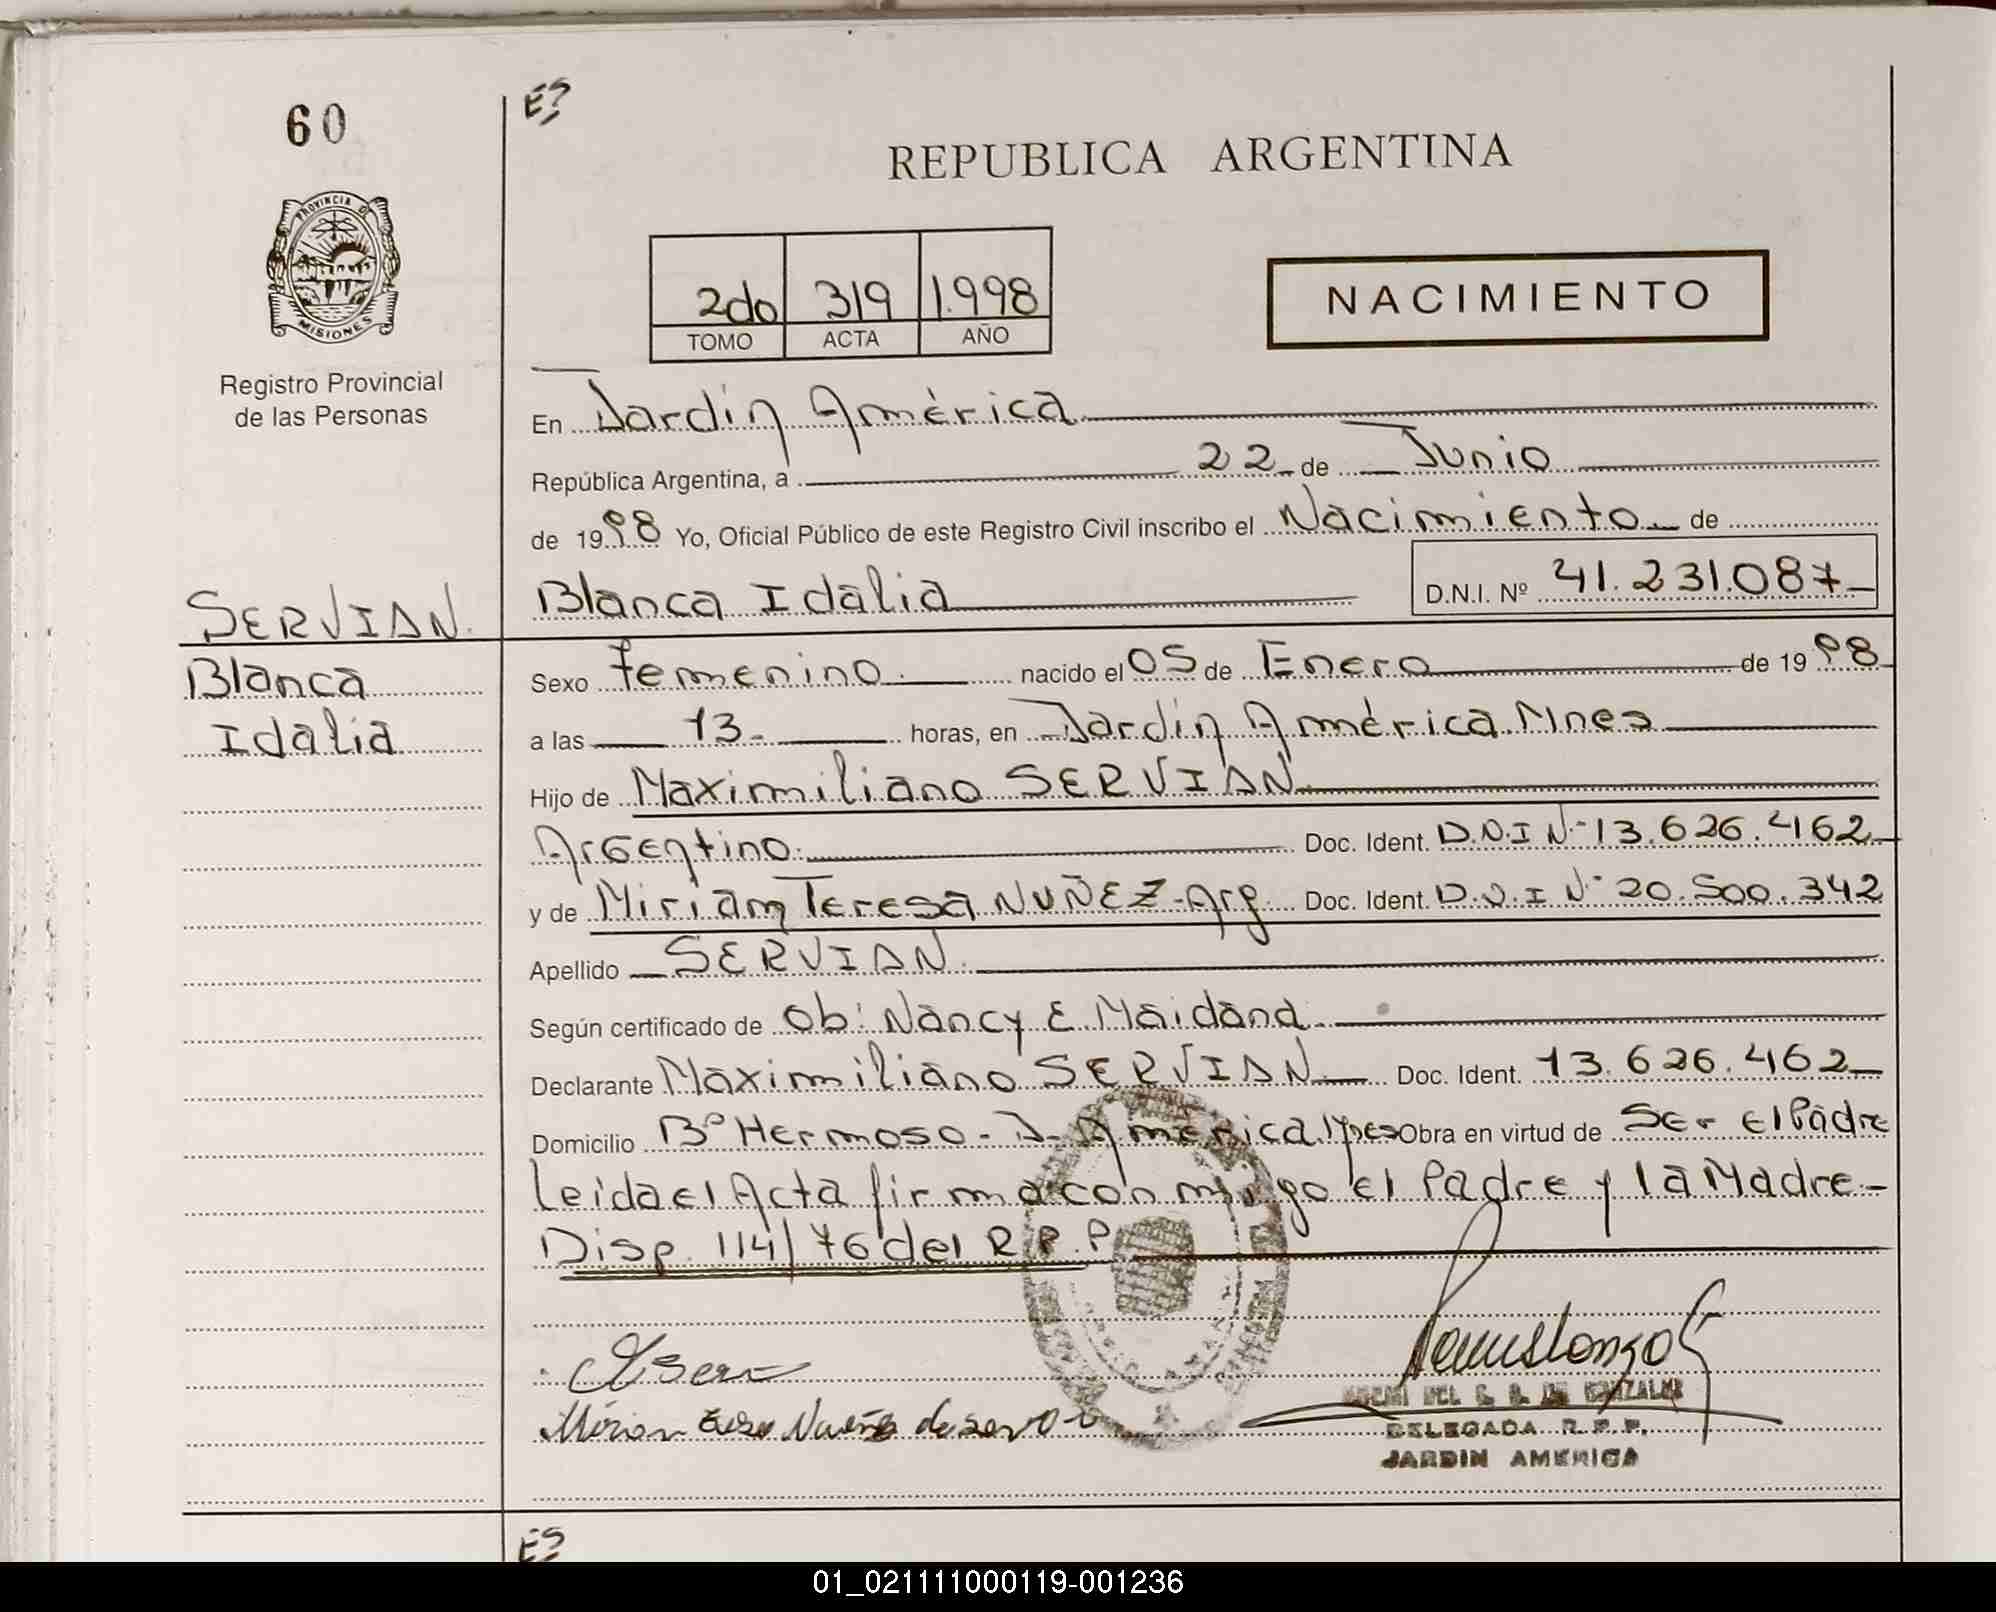 60
E?
REPUBLICA ARGENTINA
PROVINCIA DE
MISIONES
Registro Provincial
de las Personas
2do 319 1.998
TOMO ACTA AÑO
NACIMIENTO
En Jardín América
República Argentina, a 22 de Junio
de 1998 Yo, Oficial Público de este Registro Civil inscribo el Nacimiento de
Blanca Idalia D.N.I. Nº 41.231.087
SERVIAN.
Blanca
Idalia
Sexo femenino. nacido el 05 de Enero de 1998
a las 13 horas, en Jardín América Mnes
Hijo de Maximiliano SERVIAN
Argentino. Doc. Ident. D.N.I Nº 13.626.462
y de Miriam Teresa NUÑEZ-Arg. Doc. Ident. D.N.I Nº 20.500.342
Apellido SERVIAN.
Según certificado de Ob: Nancy E Maidana
Declarante Maximiliano SERVIAN. Doc. Ident. 13.626.462
Domicilio Bº Hermoso - J. América Mnes Obra en virtud de Ser El Padre
Leida el Acta firma con migo el Padre y la Madre-
Disp. 114/76 del R.P.P.
DELEGADA R.P.P.
JARDIN AMERICA
01_021111000119-001236